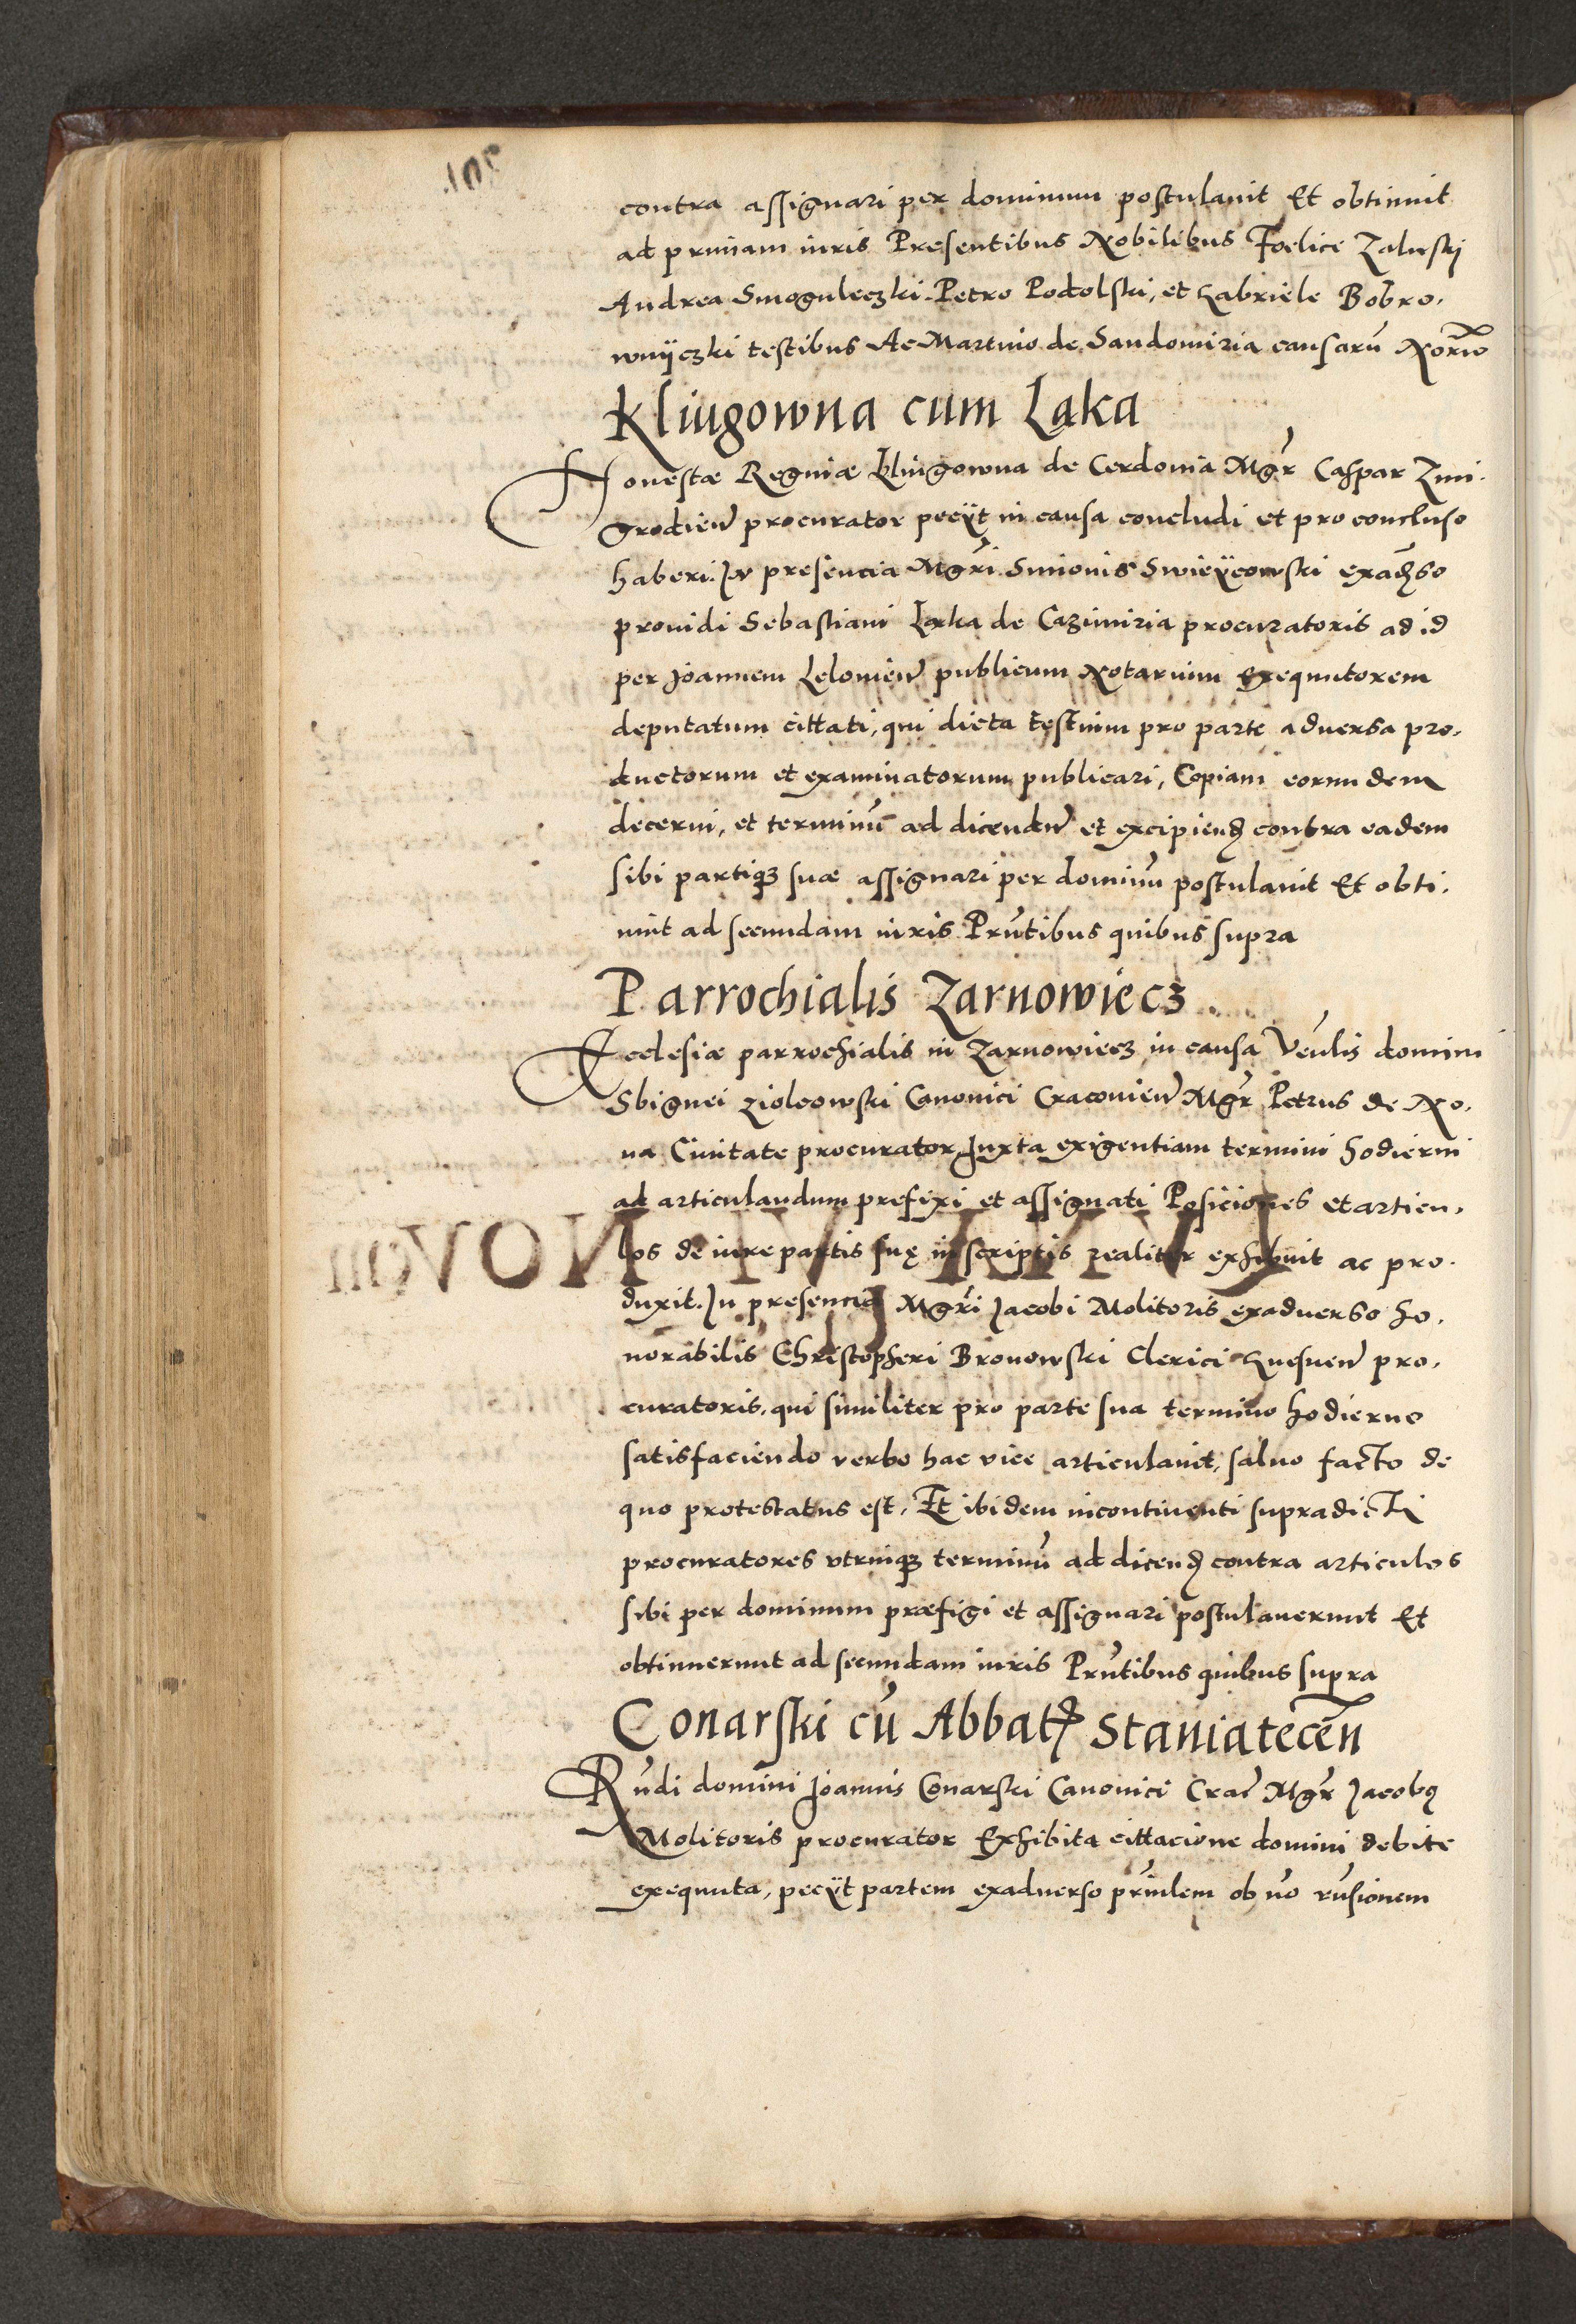 contra assignari per dominum postulavit Et obtinuit
ad primam iuris Presentibus Nobilibus Foelice Zaluskj
Andrea Smoguleczki. Petro Podolski, et Gabriele Bobro,
wnÿczki testibus Ac Martino de Sandomiria causarũ Norio
Kliugowna cum Laka
Honestæ Reginæ Kliugowna de Cerdonia Mgr̃ Caspar Zmi,
grodien̄ procurator pecÿt in causa concludi et pro concluso
haberi. In presencia Mgr̃i Simonis Swieÿcowski exadverso
providi Sebastiani Laka de Cazimiria procuratoris ad id
per Joannem Lelovien̄ publicum Notarium Exequutorem
deputatum cittati, qui dicta testium pro parte adversa pro,
ductorum et examinatorum publicari, Copiam eorundem
decerni, et terminũ ad dicendū et excipiend contra eadem
sibi partiqȝ suæ assignari per dominũ postulauit Et obti,
nuit ad secundam iuris Prñtibus quibus supra
Parrochialis Zarnowiecz
Ecclesiæ parrochialis in Zarnowiecz in causa Veñlis domini
Sbignei Ziolcowski Canonici Cracovien̄ Mgr̃ Petrus de No,
va Civitate procurator Juxta exigentiam termini hodierni
ad articulandum prefixi et assignati Posiciones et articu,
los de iure partis suę in scriptis realiter exhibuit ac pro,
duxit. In presencia Mgr̃i Jacobi Molitoris exadverso ho,
norabilis Christopheri Bronowski Clerici Gnesnen̄ pro,
curatoris, qui similiter pro parte sua termino hodierno
satisfaciendo verbo hac vice articulauit, saluo facto de
quo protestatus est, Et ibidem incontinenti supradicti
procuratores vtriusqȝ terminũ ad dicend contra articulos
sibi per dominum præfigi et assignari postulauerunt Et
obtinuerunt ad secundam iuris Prñtibus quibus supra
Conarski cũ Abbat Staniatecen̄
Rñdi domini Joannis Conarski Canonici Crac̄ Mgr̃ Jacobꝰ
Molitoris procurator Exhibita cittacione domini debite
exequuta, pecÿt partem exadverso prñcipalem ob nõ